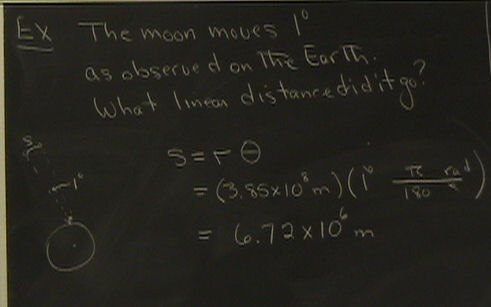 Ex The moon moves 1°
as observed on the Earth.
What linear distance did it go?
s
1°
s = r θ
= (3.85×10⁸ m)(1° π rad / 180°)
= 6.72×10⁶ m